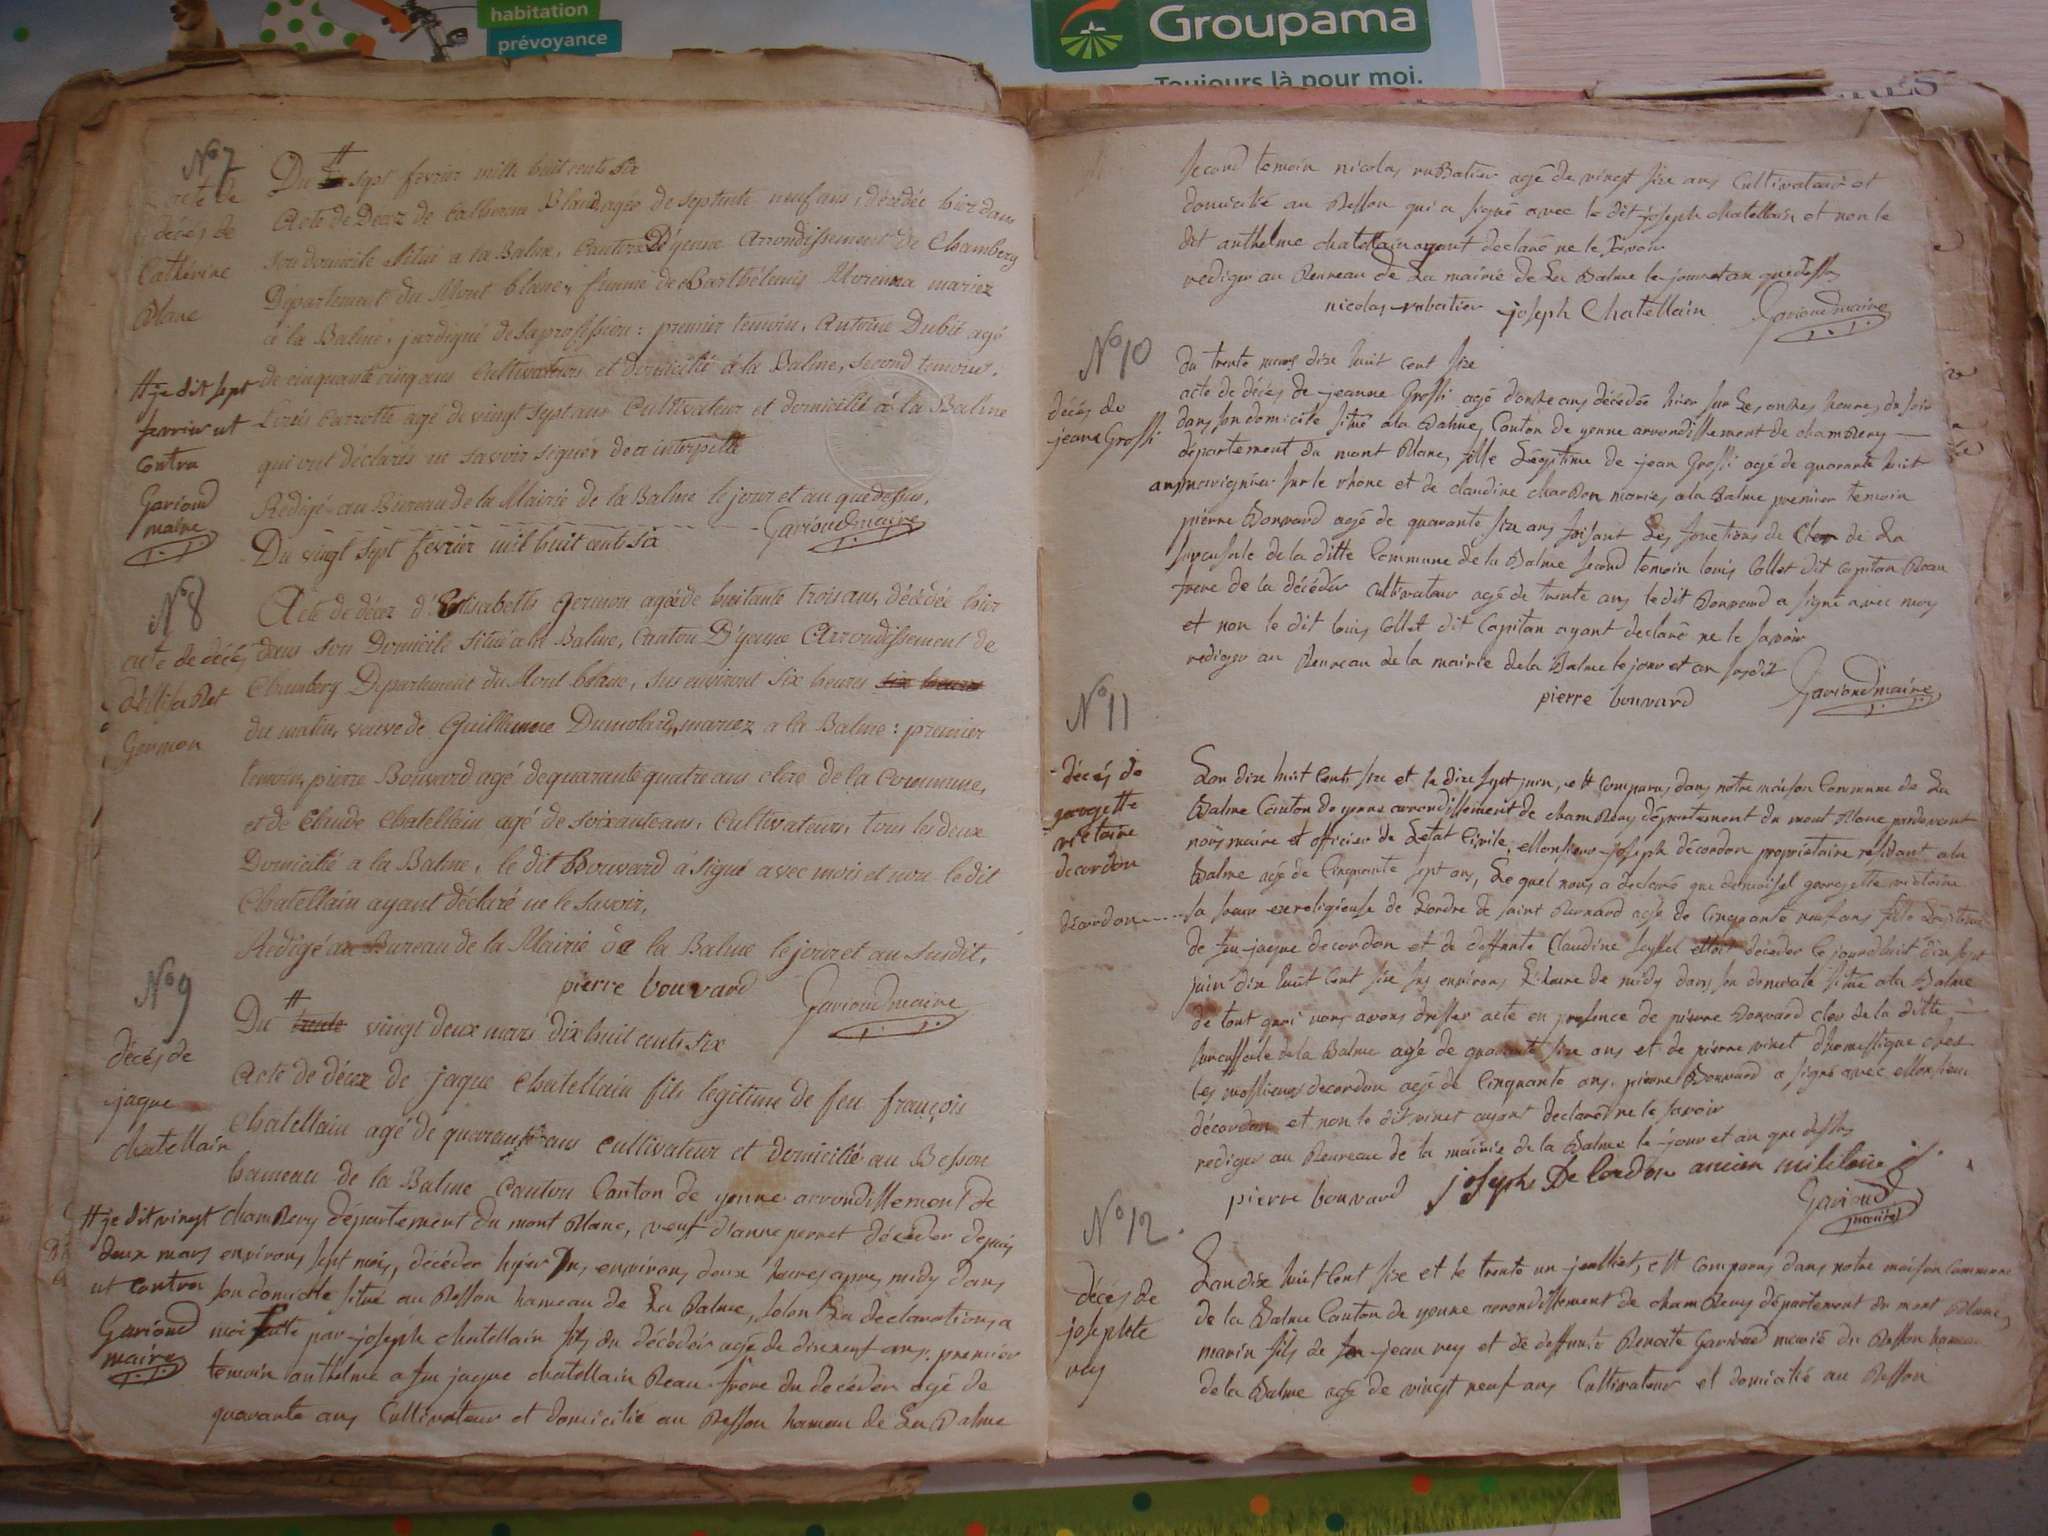 habitation
prévoyance
Groupama
Toujours là pour moi.
N° 7
acte de
décés de
Cathérine
Blanc
Du # sept fevrier mille huit cents six
Acte de Decez de Catherine Blanc agée de septente neuf ans, décédée hier dans
son domicile situé a la Balme, Canton D'yenne Arrondissement de Chambery
Département du Mont blanc, femme de Barthélemis Morenna mariez
à la Balme, de sa profession : premier temoin, Antoine Dubit agé
de cinquante cinq ans Cultivateur et domicilié à la Balme, second temoin,
Louis Carrotte agé de vingt sept ans Cultivateur et domicilié à la Balme
qui ont déclarés ne savoir signér de ce interpellé
Rédigé au Bureau de la Mairie de la Balme le jour et an que dessus,
Garioud maire
# je dit sept
fevrier ut
contra
Garioud
maire
Du vingt sept fevrier mil huit cents six
N° 8
acte de décés
d'Elisabet
Germon
Acte de décez d'Elisabeth Germon agée de huitante trois ans, décédée hier
dans son Domicile situé a la Balme, Canton D'yenne Arrondissement de
Chambery Departement du Mont blanc, sus environt six heures six heures
du matin, veuve de Guillaume Dumolard, mariez a la Balme : premier
temoin, pierre Bouvard agé de quarante quatre ans clerc de la Commune,
et de Claude Chatellain agé de soixante ans, Cultivateurs, tous les deux
Domicilié a la Balme, le dit Bouvard à signé avec mois et non le dit
Chatellain ayant déclaré ne le savoir,
Rédigé au Bureau de la Mairie de la Balme le jour et an susdit,
pierre bouvard Garioud maire
N° 9
décés de
jaque
chatellain
Du # trente vingt deux mars dix huit cents six
Acte de décez de jaque Chatellain fils legitime de feu françois
Chatellain agé de quarante ans cultivateur et domicilié au Besson
hameau de la Balme Canton Canton de yenne arrondissement de
chamBery département du mont Blanc, veuf d'anne perret décéder depuis
environs sept mois, décéder hyier sus environs deux heures apres midy dans
son domicile situé au Besson hameau de La Balme, selon La declaration a
moi faite par joseph chatellain fils du décéder agé de dix neuf ans. premier
temoin anthelme a feu jaque chatellain Beau frere du decéder agé de
quarante ans Cultivateur et domicilié au Besson hameau de La Balme
# je dit vingt
deux mars
ut contra
Garioud
maire
second temoin nicolas ruBatier agé de vingt sixe ans Cultivateur et
domicilié au Besson qui a signé avec le dit joseph chatellain et non le
dit anthelme chatellain ayant declaré ne le savoir
rediger au Beureau de La mairie de La Balme le jour et an que dessus
nicolas rubatier joseph Chatellain Garioud maire
N° 10
décés de
jeane Grossi
du trente mars dixe huit cent sixe
acte de décés de jeanne Grossi agé d'onze ans décédée hier sur Les onzes heures du soir
dans son domicile situé a la Balme, Canton de yenne arrondissement de chamBery
département du mont Blanc, fille Légitime de jean Grossi agé de quarante huit
ans navigateur sur le rhone et de claudine charDon mariés a la Balme premier temoin
pierre Bouvard agé de quarante six ans faisant Les fonctions de Cler de La
surcusale de la ditte Commune de la Balme second temoin louis Collet dit capitan Beau
frere de la décédér cultivateur agé de trente ans le dit Bouvard a signé avec moy
et non le dit louis collet dit Capitan ayant declaré ne le savoir
rediger au Beureau de la mairie de la Balme le jour et an susdit
pierre bouvard Garioud maire
N° 11
décés de
georgette
victoire
decordon
décordon
L'an dixe huit Cents sixe et le dixe sept juin, est comparu, dans notre maison Commune de La
Balme Canton de yenne arrondissement de chamBery département du mont Blanc pardevant
nous maire et officier de L'etat Civile, Monsieur joseph décordon propriétaire residant a la
Balme agé de Cinquante sept ans, Le quel nous a declaré que demoisel georgette victoire
sa sœur exreligieuse de L'ordre de saint Bernard agée de cinquante neuf ans fille Légitime
de feu jaque decordon et de deffunte Claudine seyssel estoit décéder ce jourd'huit dix sept
juin dixe huit cent sixe sus environs L'heure de midy dans son domicile situé a la Balme
de tout quoi nous avons dresser acte en presence de pierre Bouvard cler de la ditte
surcussale de la Balme agé de quarante sixe ans et de pierre vinet domestique chez
les messieurs decordon agé de Cinquante ans. pierre Bouvard a signé avec Monsieur
décordon et non le dit vinet ayant declaré ne le savoir
rediger au Beureau de la mairie de la Balme le jour et an que dessus
pierre bouvard joseph De Cordon ancien militaire
Garioud
maire
N° 12
décés de
josephte
rey
L'an dixe huit Cent sixe et le trente un juilliet, est comparus dans notre maison commune
de la Balme Canton de yenne arrondissement de chamBery département du mont Blanc,
marin fils de feu jean rey et de deffunte Benoite Garioud marié du Besson hameau
de la Balme agé de vingt neuf ans Cultivateur et domicilié au Besson